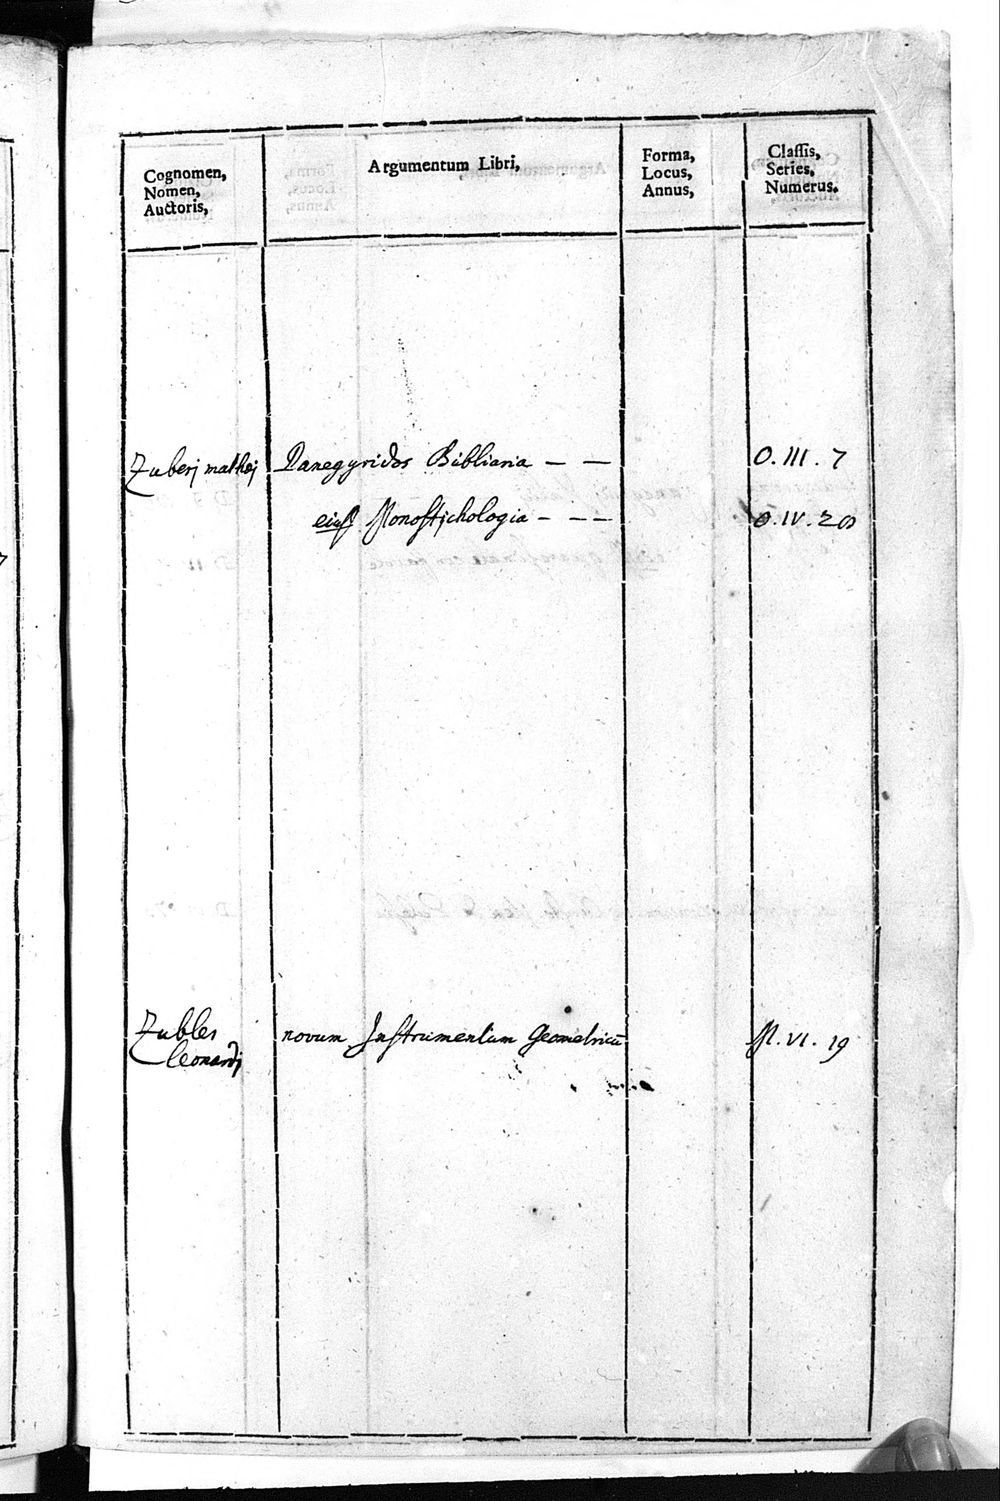 Cognomen,
Nomen,
Auctoris,
Argumentum Libri,
Forma,
Locus,
Annus,
Classis,
Series,
Numerus.
Zuberj mathej Panegyridos Bibliaria — — O. III. 7
eiusq Monostichologia - - - O. IV. 20
Zubler novum Instrumentum Geometricū M. VI. 19
Leonardj